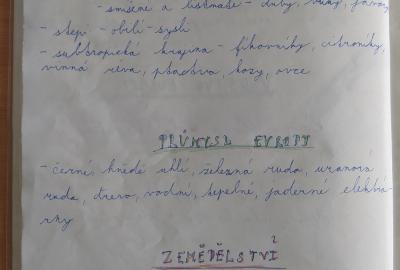 - smíšené a listnaté - duby, buky, javory
- stepi - obilí - sysli
- subtropická krajina - fíkovníky, citroníky,
vinná réva, ptactvo, kozy, ovce
PRŮMYSL EVROPY
- černé, hnědé uhlí, železná ruda, uranová
ruda, dřevo, vodní, tepelné, jaderné elektrá-
rny
ZEMĚDĚLSTVÍ